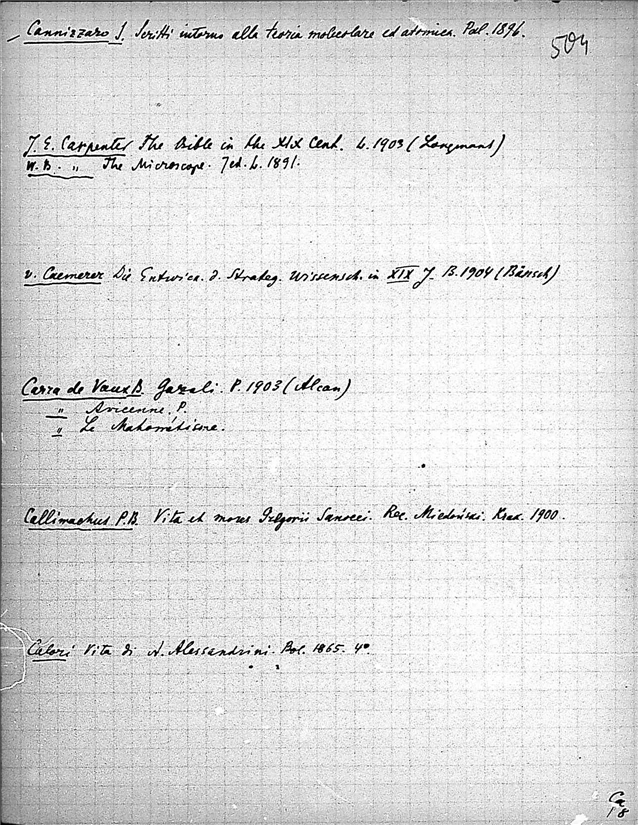 Cannizzaro S. Scritti intorno alla teoria molecolare ed atomica. Pal. 1896.
504
J. E. Carpenter The Bible in the XIX Cent. L. 1903 (Longmans)
W. B. " The Microscope. 7 ed. L. 1891.
v. Caemerer Die Entwick. d. Strateg. Wissensch. in XIX J. B. 1904 (Bänsch)
Carra de Vaux B. Gazali. P. 1903 (Alcan)
" Avicenne. P.
" Le Mahométisme.
Callimachus P.B. Vita et mores Gregorii Sanocei. Rec. Miodoński. Krak. 1900.
Calori Vita di A. Alessandrini. Bol. 1865. 4°.
Ca
18